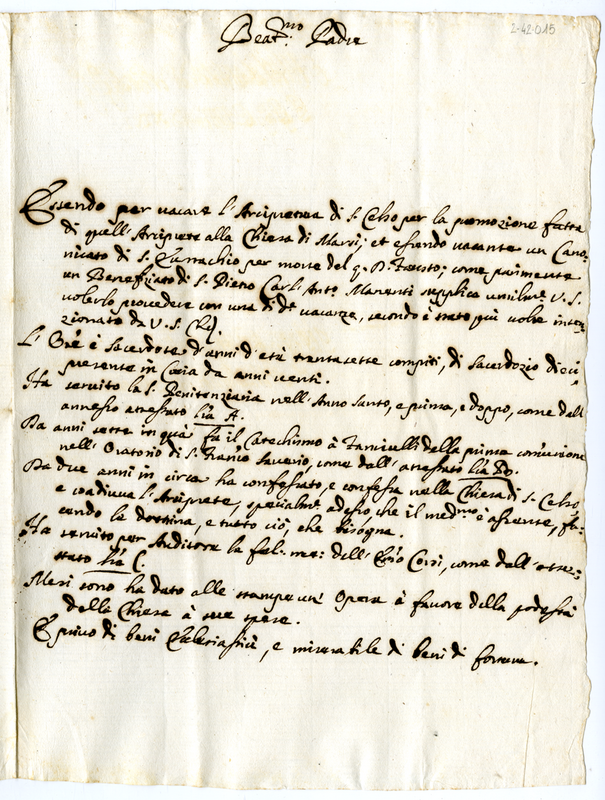 2-42-015
Beat.mo Padre
Essendo per vacare l'Arcipretura di S. Celso per la promozione fatta
di quell'Arciprete alla Chiesa di Marsi; et essendo vacante un Cano:
nicato di S. Eustachio per morte del q. D. ; come parimente
un Beneficiato di S. Pietro Carl' Ant.o Manenti supplica umilm.e V. S.
volerlo provedere con una di d.e vacanze, secondo è stato più volte inten,
zionato da V. S.
L'Ore è Sacerdote d'anni d'età trentasette compiti, di Sacerdozio dieci,
presente in Curia da anni venti.
Ha servito la S. Penitenziaria nell'Anno Santo, e prima, e doppo, come dall'
annesso attestato lra A.
Da anni sette in quà fa il Catechismo à Fanciulli della prima com̃unione
nell'Oratorio di S. Franco Saverio, come dall'attestato lra B.
Da due anni in circa ha confessato, e confessa nella Chiesa di S. Celso,
e coadiuva l'Arciprete, specialm.e adesso che il med.mo è assente, fa,
cendo la dottrina, e tutto ciò, che bisogna.
Ha servito per Auditore la fel: me: dell' Em̃o Corsi, come dall'atte:
stato lra C.
Mesi sono ha dato alle stampe un' Opera à favore della podestà
della Chiesa à sue spese.
È privo di beni Ecclesiastici, e miserabile di beni di fortuna.